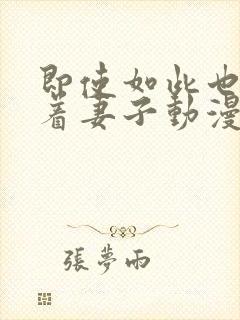 即使如此也
著妻子動漫
張夢雨